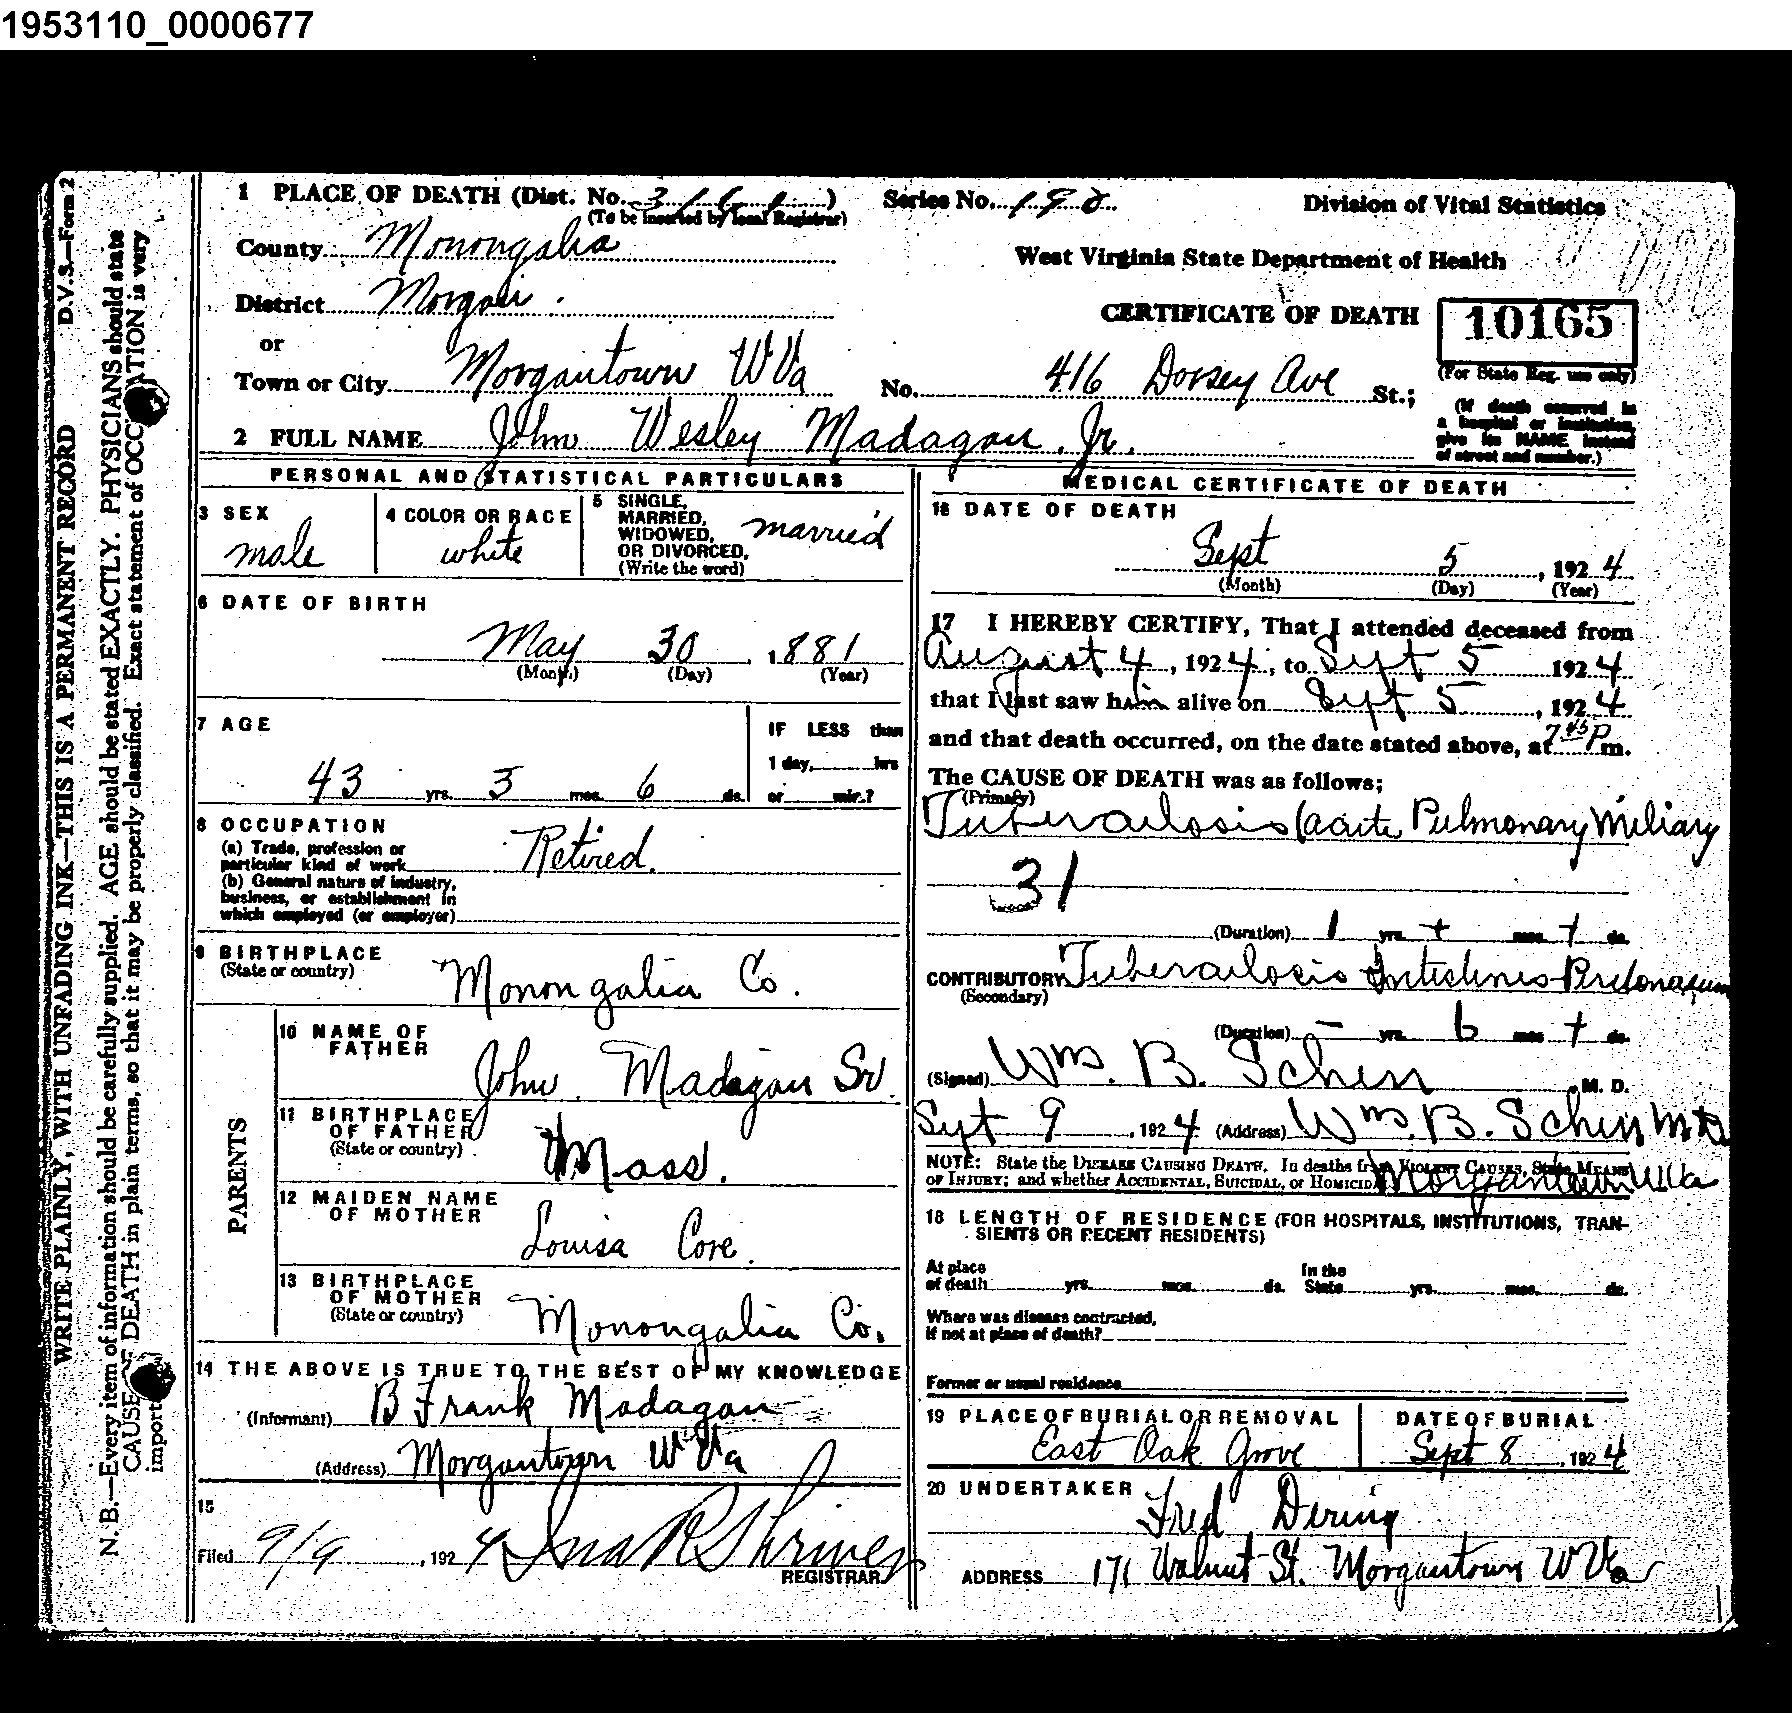 1953110_0000677
D.V.S.—Form 2
WRITE PLAINLY, WITH UNFADING INK—THIS IS A PERMANENT RECORD
N. B.—Every item of information should be carefully supplied. AGE should be stated EXACTLY. PHYSICIANS should state
CAUSE OF DEATH in plain terms, so that it may be properly classified. Exact statement of OCCUPATION is very
import
1 PLACE OF DEATH (Dist. No. 3161) Series No. 198 Division of Vital Statistics
(To be inserted by local Registrar)
County Monongalia West Virginia State Department of Health
District Morgan CERTIFICATE OF DEATH 10165
or (For State Reg. use only)
Town or City Morgantown W Va No. 416 Dorsey Ave St.;
(If death occurred in
a hospital or institution,
give its NAME instead
of street and number.)
2 FULL NAME John Wesley Madagan Jr.
PERSONAL AND STATISTICAL PARTICULARS
3 SEX
male
4 COLOR OR RACE
white
5 SINGLE,
MARRIED,
WIDOWED,
OR DIVORCED,
(Write the word)
married
6 DATE OF BIRTH
May 30, 1881
(Month) (Day) (Year)
7 AGE
43 yrs. 3 mos. 6 ds.
IF LESS than
1 day, hrs
or min.?
8 OCCUPATION
(a) Trade, profession or
particular kind of work Retired.
(b) General nature of industry,
business, or establishment in
which employed (or employer)
9 BIRTHPLACE
(State or country) Monongalia Co.
PARENTS
10 NAME OF
FATHER John Madagan Sr.
11 BIRTHPLACE
OF FATHER
(State or country) Mass.
12 MAIDEN NAME
OF MOTHER Louisa Core.
13 BIRTHPLACE
OF MOTHER
(State or country) Monongalia Co.
14 THE ABOVE IS TRUE TO THE BEST OF MY KNOWLEDGE
(Informant) B Frank Madagan
(Address) Morgantown W Va
15
Filed 9/9, 1924 Ina R Shriver
REGISTRAR
MEDICAL CERTIFICATE OF DEATH
16 DATE OF DEATH
Sept 5, 1924
(Month) (Day) (Year)
17 I HEREBY CERTIFY, That I attended deceased from
August 4, 1924, to Sept 5 1924
that I last saw him alive on Sept 5, 1924
and that death occurred, on the date stated above, at 7 45 P m.
The CAUSE OF DEATH was as follows;
(Primary)
Tuberculosis (acute Pulmonary Miliary
31
(Duration) 1 yrs. + mos. + ds.
CONTRIBUTORY Tuberculosis Intestines Peritonaeum
(Secondary)
(Duration) - yrs. 6 mos. + ds.
(Signed) Wm. B. Schen, M. D.
Sept 9, 1924 (Address) Wm. B. Schen M D
NOTE: State the DISEASE CAUSING DEATH. In deaths from VIOLENT CAUSES, State MEANS
OF INJURY; and whether ACCIDENTAL, SUICIDAL, or HOMICIDAL Morgantown W Va
18 LENGTH OF RESIDENCE (FOR HOSPITALS, INSTITUTIONS, TRAN-
SIENTS OR RECENT RESIDENTS)
At place
of death yrs. mos. ds.
In the
State yrs. mos. ds.
Where was disease contracted,
if not at place of death?
Former or usual residence
19 PLACE OF BURIAL OR REMOVAL
East Oak Grove
DATE OF BURIAL
Sept 8, 1924
20 UNDERTAKER
Fred Dering
ADDRESS 171 Walnut St. Morgantown W Va